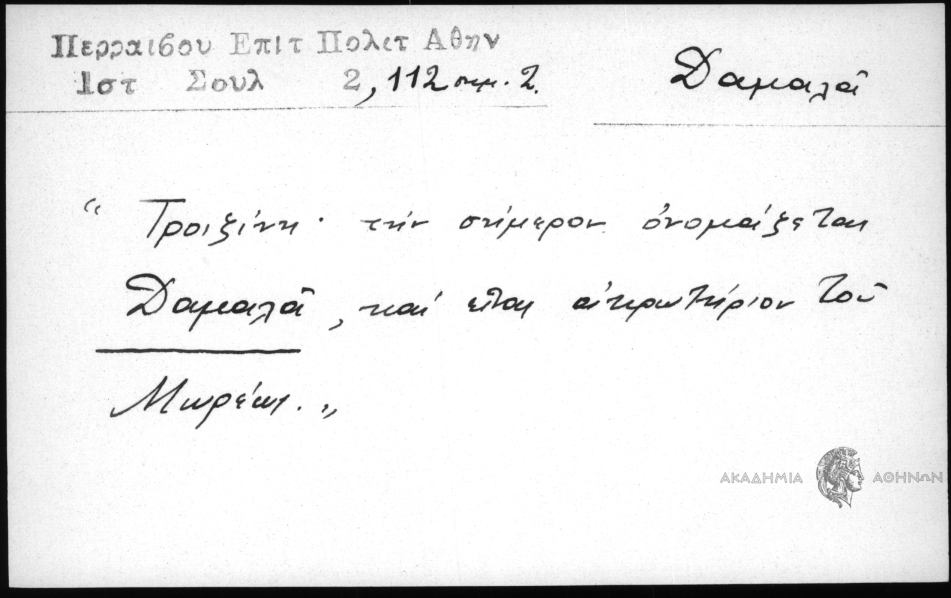 Περραιβου Επιτ Πολετ Αθην
Ιστ Σουλ 2, 112 σημ. 2.
Δαμαλᾶ
“ Τροιζίνη· τὴν σήμερον ὀνομάζεται
Δαμαλᾶ, καί εἶναι ἀκρωτήριον τοῦ
Μωρέως. „
ΑΚΑΔΗΜΙΑ ΑΘΗΝΩΝ